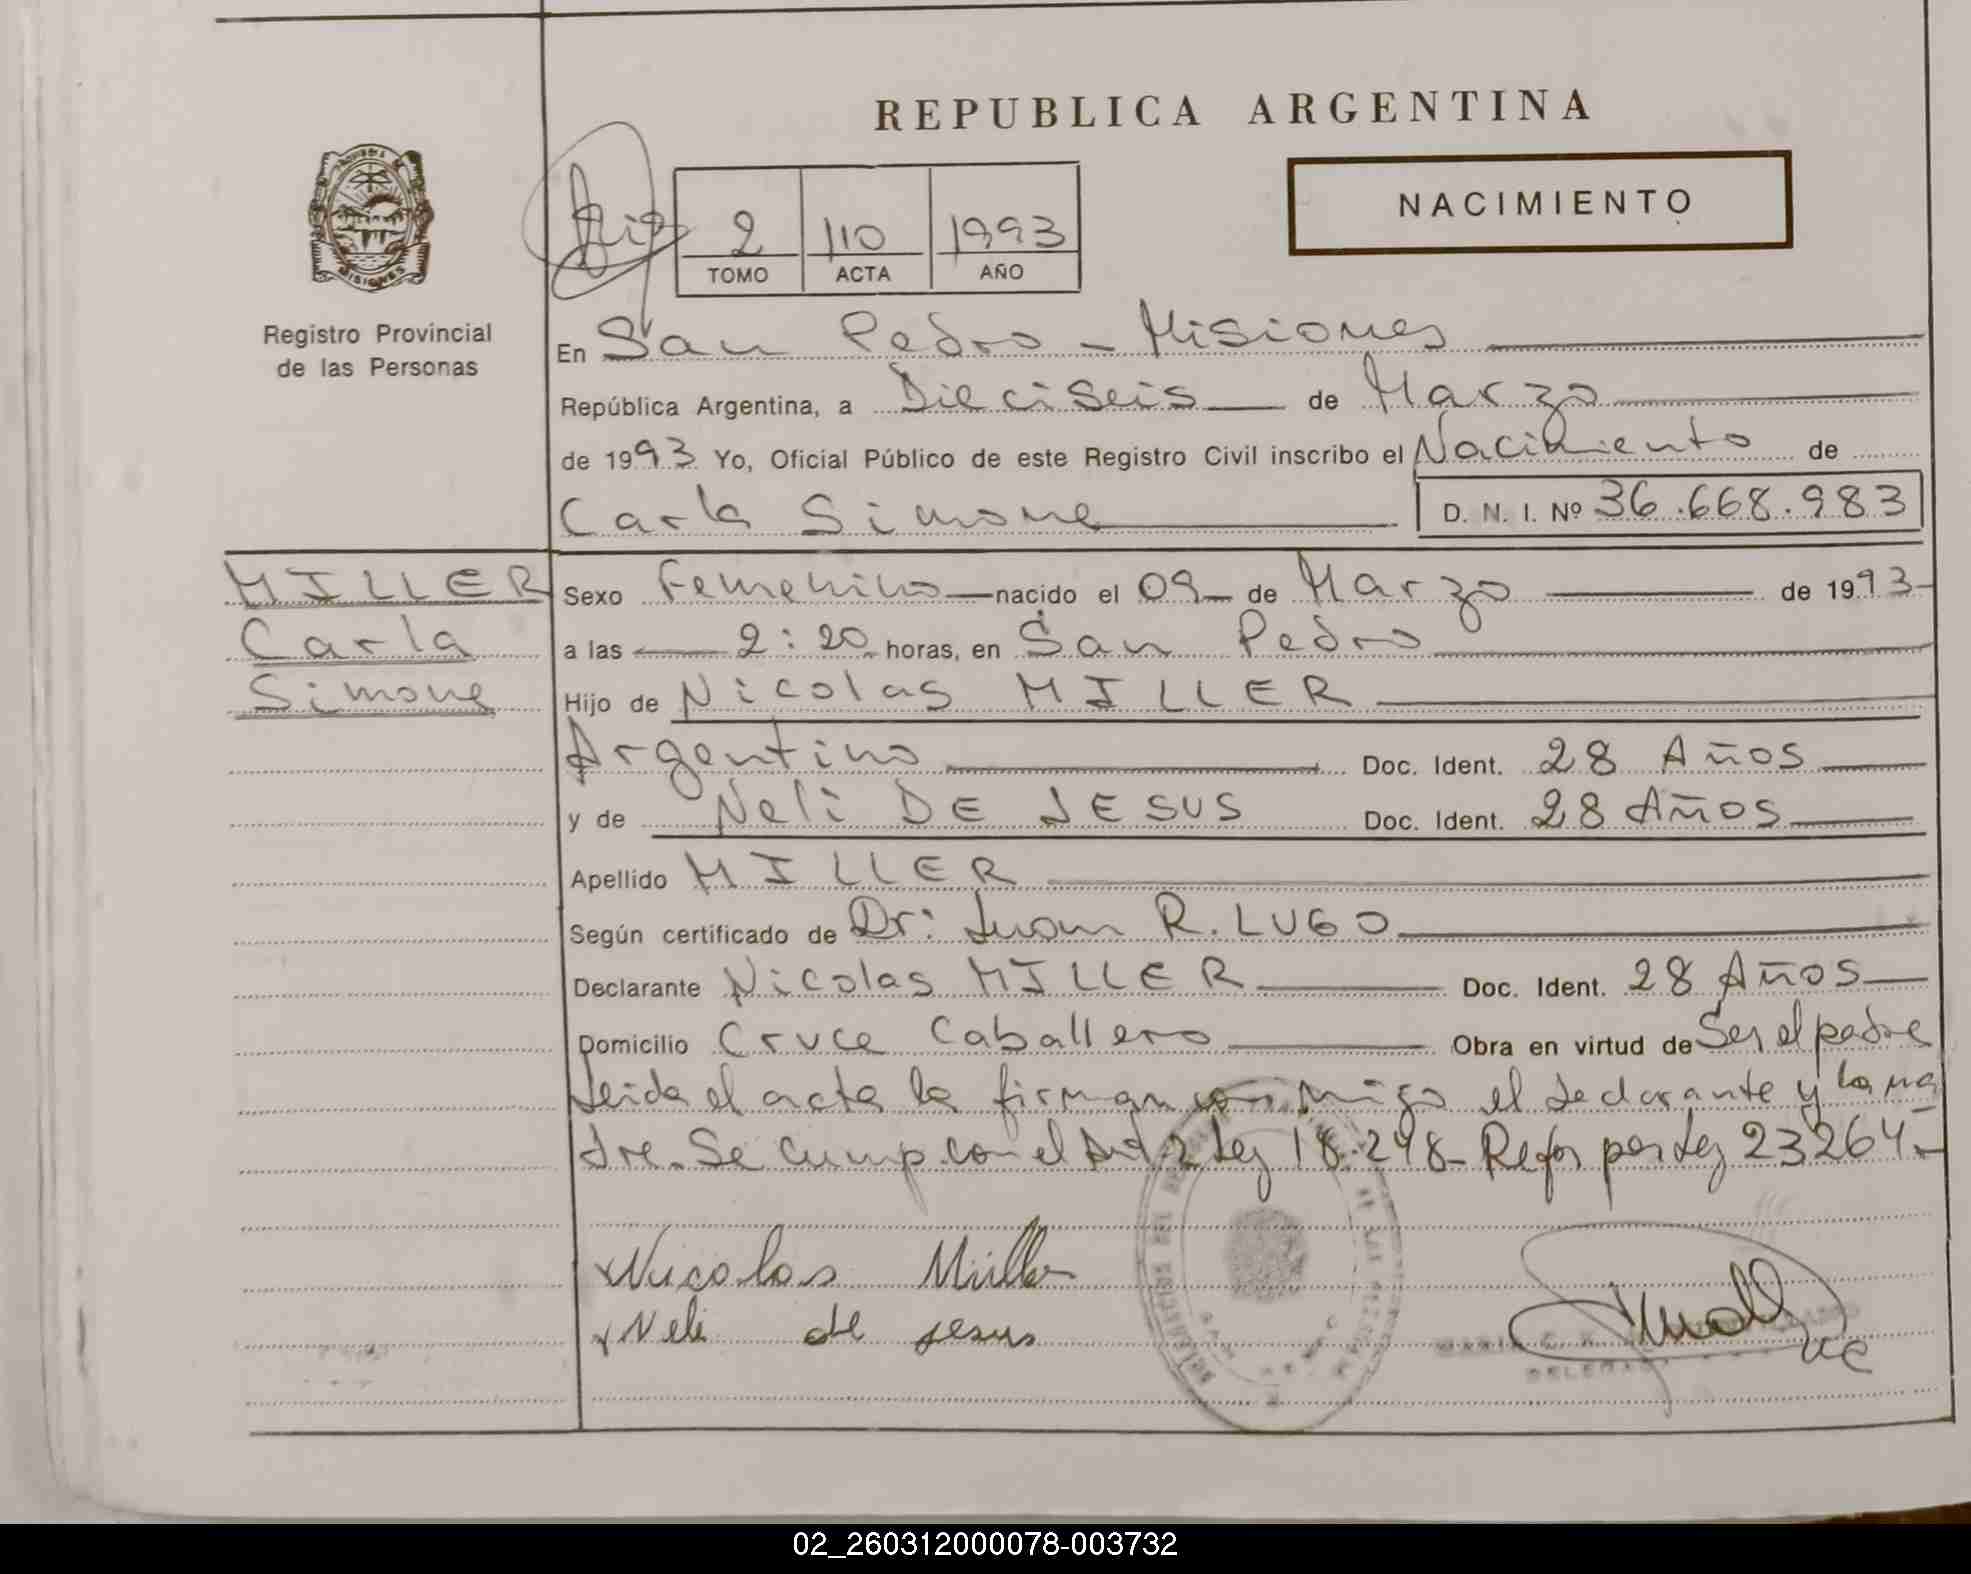 REPUBLICA ARGENTINA
NACIMIENTO
2 110 1993
TOMO ACTA AÑO
MISIONES
Registro Provincial
de las Personas
En San Pedro - Misiones
República Argentina, a Dieciseis de Marzo
de 1993 Yo, Oficial Público de este Registro Civil inscribo el Nacimiento de
Carla Simone D. N. I. Nº 36.668.983
MILLER
Carla
Simone
Sexo Femenino nacido el 09 de Marzo de 1993
a las 2:20 horas, en San Pedro
Hijo de Nicolas MILLER
Argentino Doc. Ident. 28 Años
y de Neli DE JESUS Doc. Ident. 28 Años
Apellido MILLER
Según certificado de Dr: Juan R. LUGO
Declarante Nicolas MILLER Doc. Ident. 28 Años
Domicilio Cruce Caballero Obra en virtud de Ser el padre
Leida el acta la firman conmigo el declarante y la ma
dre. Se cump. con el Art 2 Ley 18.248- Refor por Ley 23264-
Nicolas Miller
Neli de jesus
02_260312000078-003732